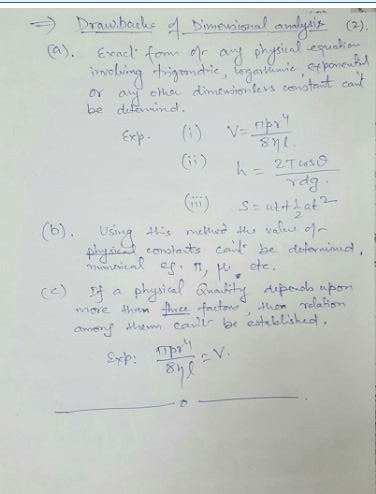 => Drawbacks of Dimensional analysis (2).
(a). Exact form of any physical equation
involving trignometric, logarithmic, exponential
or any other dimensionless constant can't
be determind.
Exp. (i) V = πpr⁴ / 8ηl.
(ii) h = 2Tcosθ / rdg.
(iii) S = ut + ½ at²
(b). Using this method the value of
physical constants can't be determined.
numerical eg. π, μ, etc.
(c) If a physical Quality depends upon
more than three factors, then relation
among them can't be established.
Exp: πpr⁴ / 8ηl = V.